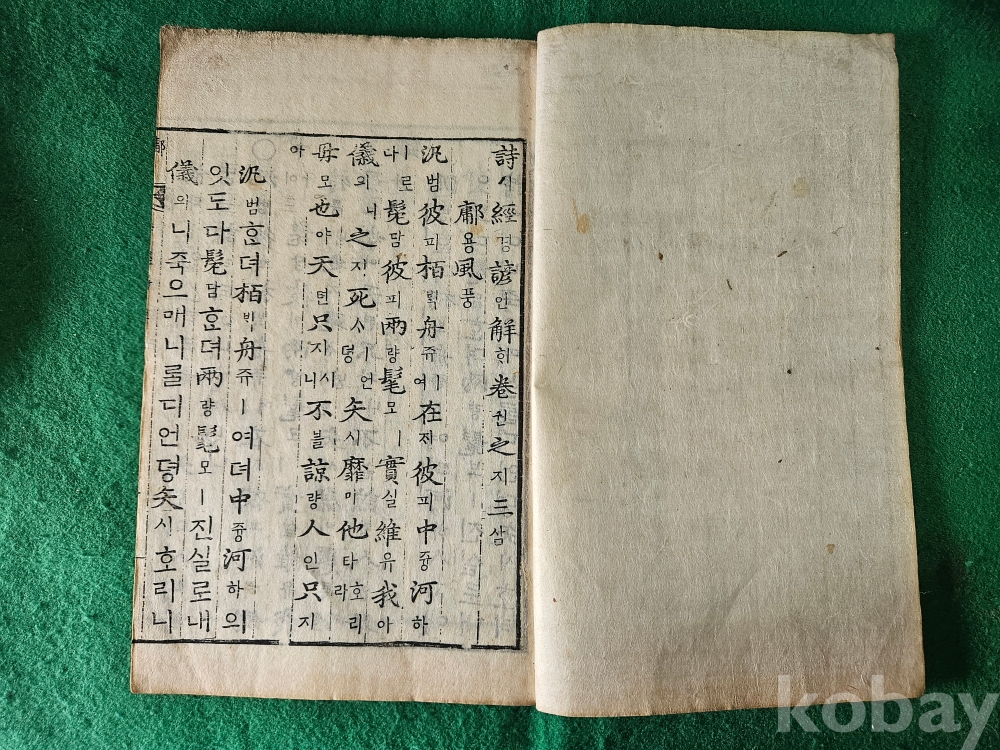 詩시經경諺언解ᄒᆡ卷권之지三삼
鄘용風풍
汎범彼피栢ᄇᆡᆨ舟쥬ㅣ여在ᄌᆡ彼피中즁河하
ㅣ로다髧담彼피兩량髦모ㅣ實실維유我아
儀의니之지死ᄉᆞㅣ언뎡矢시靡미他타호리라
母모也야天텬只지시니不블諒량人인只지
아
汎범ᄒᆞᆫ뎌栢ᄇᆡᆨ舟쥬ㅣ여뎌中즁河하의
잇도다髧담ᄒᆞᆫ뎌兩량髦모ㅣ진실로내
儀의니죽으매니ᄅᆞᆯ디언뎡矢시호리니
kobay